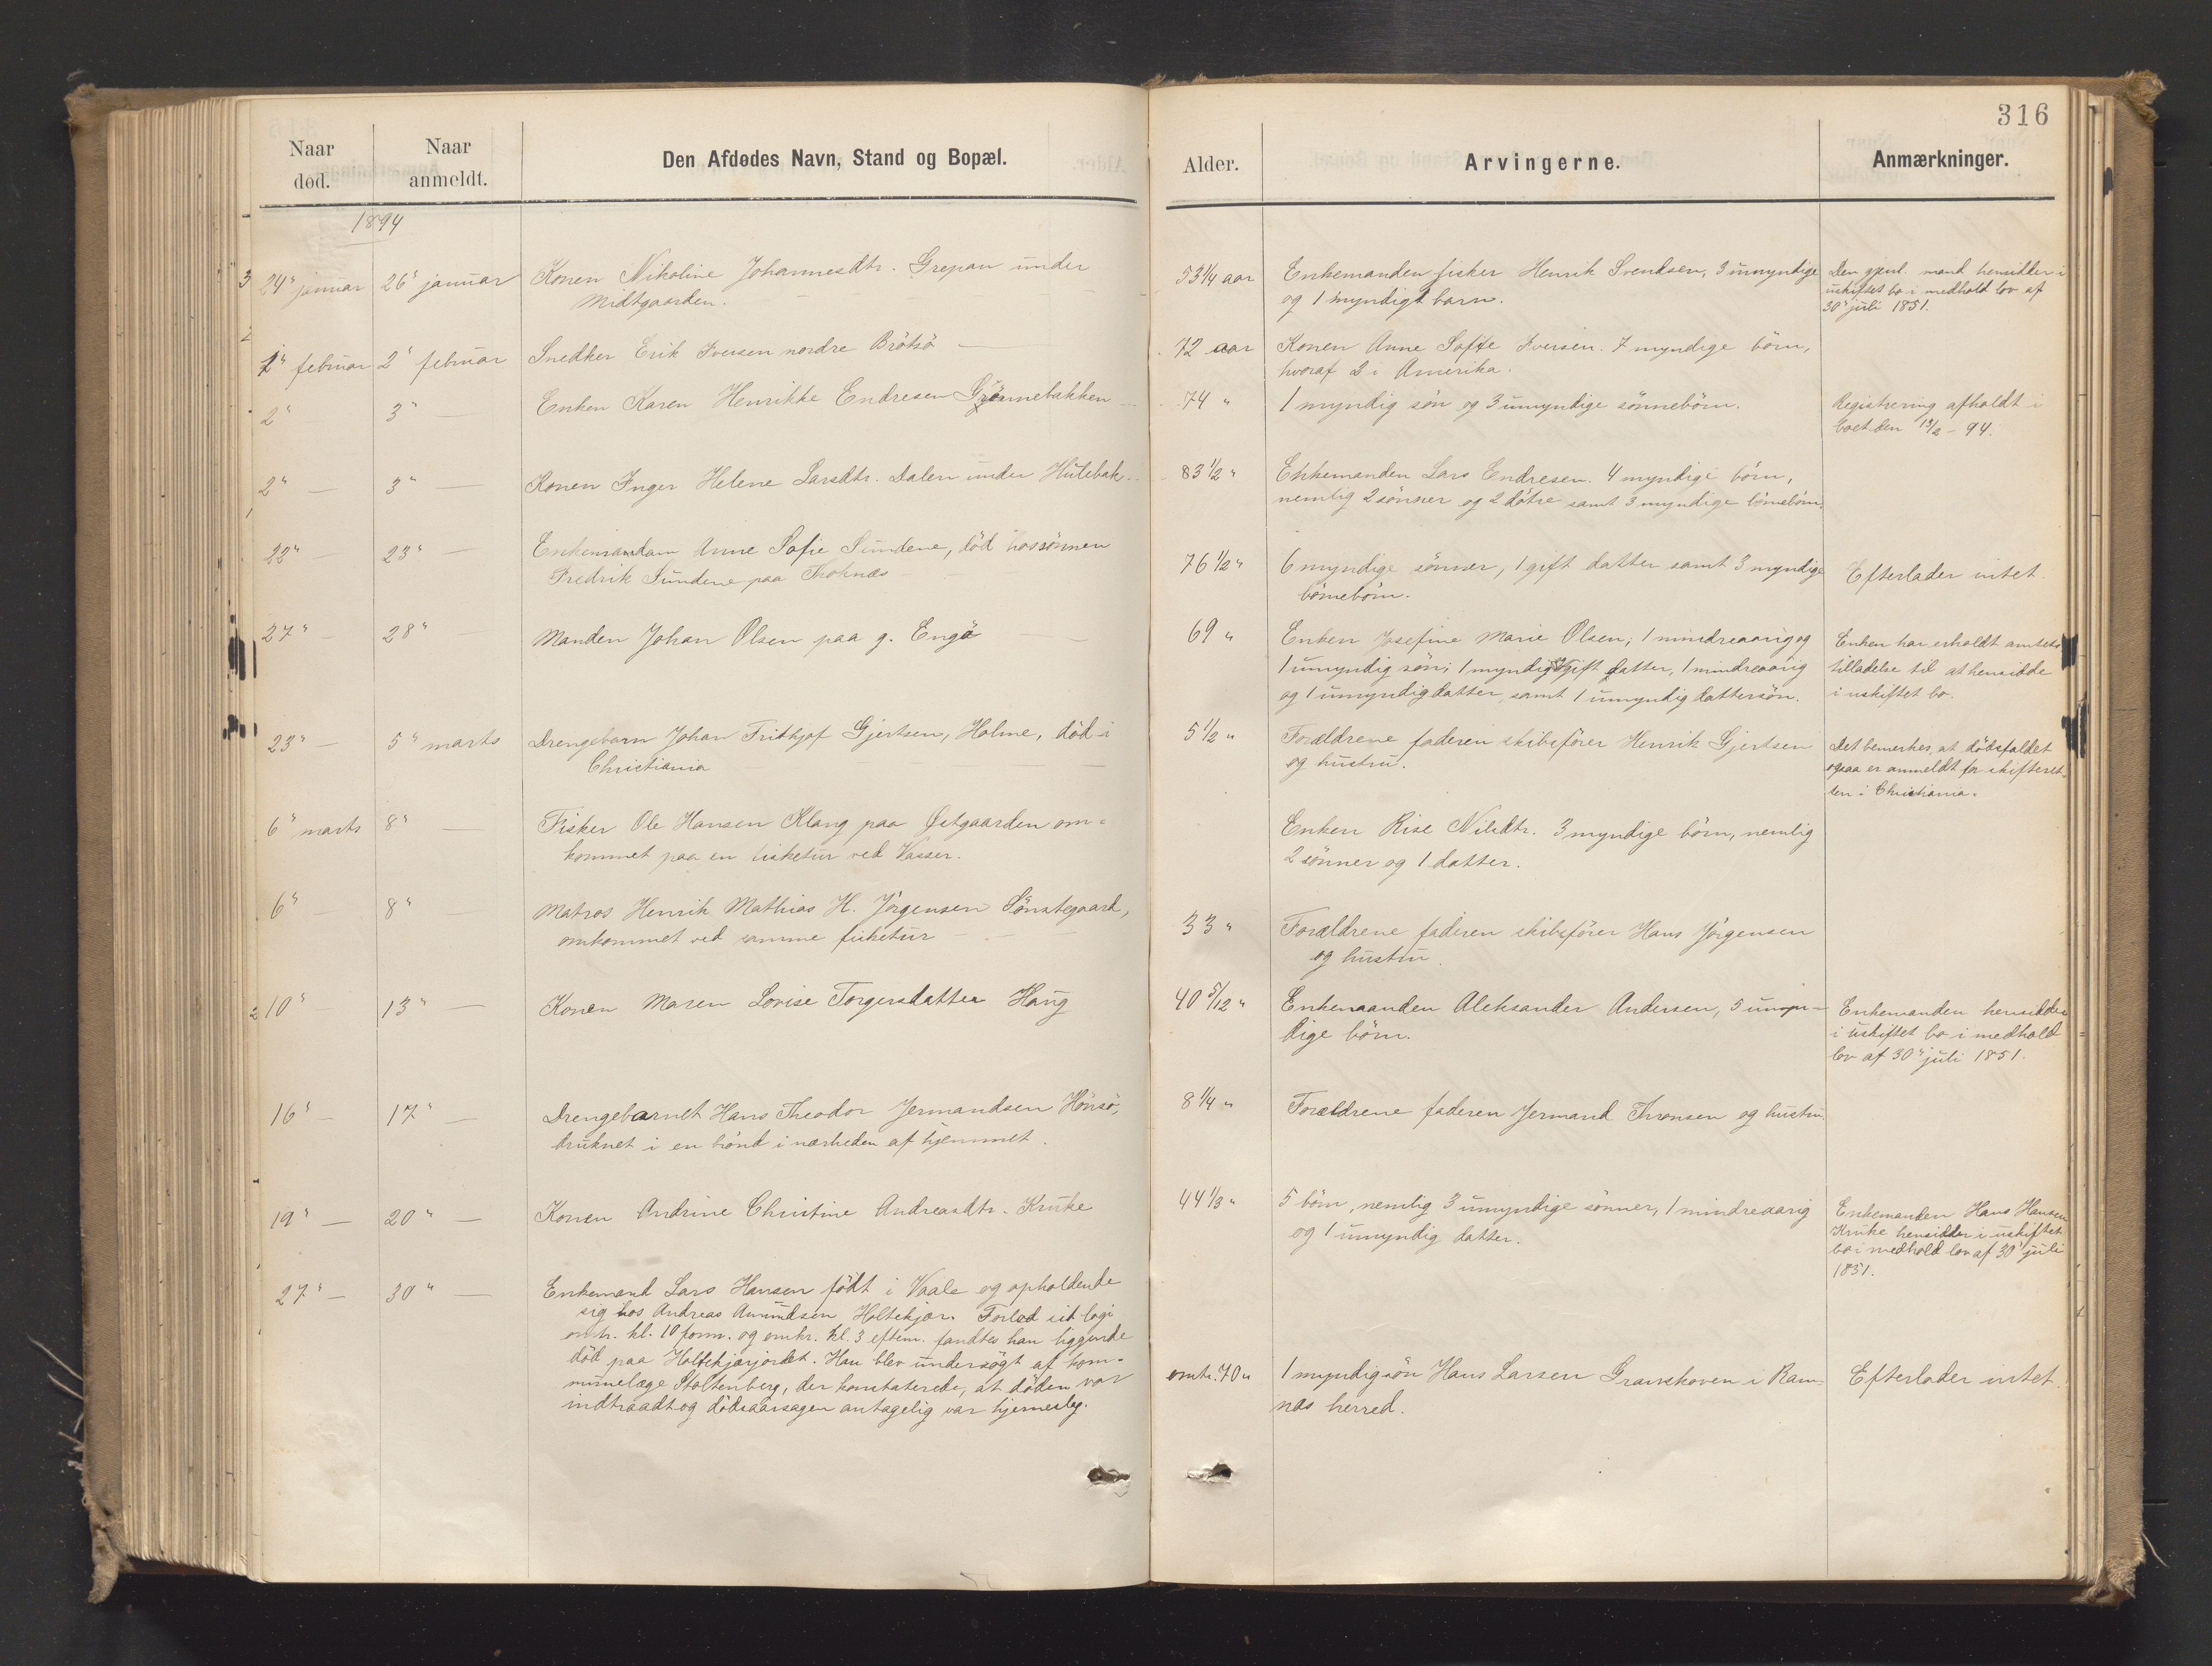 316
Naar død.
Naar anmeldt.
Den Afdødes Navn, Stand og Bopæl.
Alder.
Arvingerne.
Anmærkninger.
1894
24" januar
26" januar
Konen Nikoline Johannesdtr. Grepan under
Midtgaarden.
53 1/4 aar
Enkemanden fisker Henrik Svendsen, 3 umyndige
og 1 myndigt barn.
Den gjenl. mand hensidder i
uskiftet bo i medhold lov af
30" juli 1851.
1" februar
2" februar
Snedker Erik Iversen nordre Brötsö
72 aar
Konen Anne Sofie Iversen. 7 myndige börn,
hvoraf 2 i Amerika.
2"
3"
Enken Karen Henrikke Endresen Grönnebakken
74 "
1 myndig sön og 3 umyndige sönnebörn.
Registrering afholdt i
boet den 13/2 - 94.
2"
3"
Konen Inger Helene Larsdtr. Dalen under Hulebak
83 1/2 "
Enkemanden Lars Endresen. 4 myndige börn,
nemlig 2 sönner og 2 dötre samt 3 myndige börnebörn.
22"
23"
Enkemadam Anne Sofie Sundene, död hos sönnen
Fredrik Sundene paa Thoknæs
76 1/2 "
6 myndige sönner, 1 gift datter samt 3 myndige
börnebörn.
Efterlader intet.
27"
28"
Manden Johan Olsen paa g. Engö
69 "
Enken Josefine Marie Olsen; 1 mindreaarig og
1 umyndig sön; 1 myndig gift datter, 1 mindreaarig
og 1 umyndig datter, samt 1 umyndig dattersön.
Enken har erholdt amtets
tilladelse til at hensidde
i uskiftet bo.
23"
5" marts
Drengebarn Johan Fridhjof Gjertsen, Holme, död i
Christiania
5 1/2 "
Forældrene faderen skibsförer Henrik Gjertsen
og hustru.
Det bemerkes, at dödsfaldet
ogsaa er anmeldt for skifteret-
ten i Christiania.
6" marts
8"
Fisker Ole Hansen Klang paa Østgaarden om=
kommet paa en fisketur ved Vasser.
Enken Rise Nilsdtr. 3 myndige börn, nemlig
2 sönner og 1 datter.
6"
8"
Matros Henrik Mathias H. Jörgensen Sönstegaard,
omkommet ved samme fisketur
33 "
Forældrene faderen skibsförer Hans Jörgensen
og hustru.
10"
13"
Konen Maren Lovise Torgersdatter Haug
40 5/12 "
Enkemanden Aleksander Andersen, 5 umyn-
dige börn.
Enkemanden hensidder
i uskiftet bo i medhold
lov af 30" juli 1851.
16"
17"
Drengebarnet Hans Theodor Jermandsen Hönsö,
druknet i en brönd i nærheden af hjemmet.
8 1/4 "
Forældrene faderen Jermand Thronsen og hustru.
19"
20"
Konen Andrine Christine Andreasdtr. Kruke
44 1/3 "
5 börn, nemlig 3 umyndige sönner, 1 mindreaarig
og 1 umyndig datter.
Enkemanden Hans Hansen
Kruke hensidder i uskiftet
bo i medhold lov af 30" juli
1851.
27"
30"
Enkemand Lars Hansen födt i Vaale og opholdende
sig hos Andreas Amundsen Holtekjær. Forlod sit logi
omtr. kl. 10 form. og omkr. kl. 3 eftem. fandtes han liggende
död paa Holtekjærjordet. Han blev undersögt af kom=
munelæge Stoltenberg, der konstaterede, at döden var
indtraadt og dödsaarsagen antagelig var hjerneslag.
omtr. 70 "
1 myndig sön Hans Larsen Gravskoven i Ram-
næs herred.
Efterlader intet.